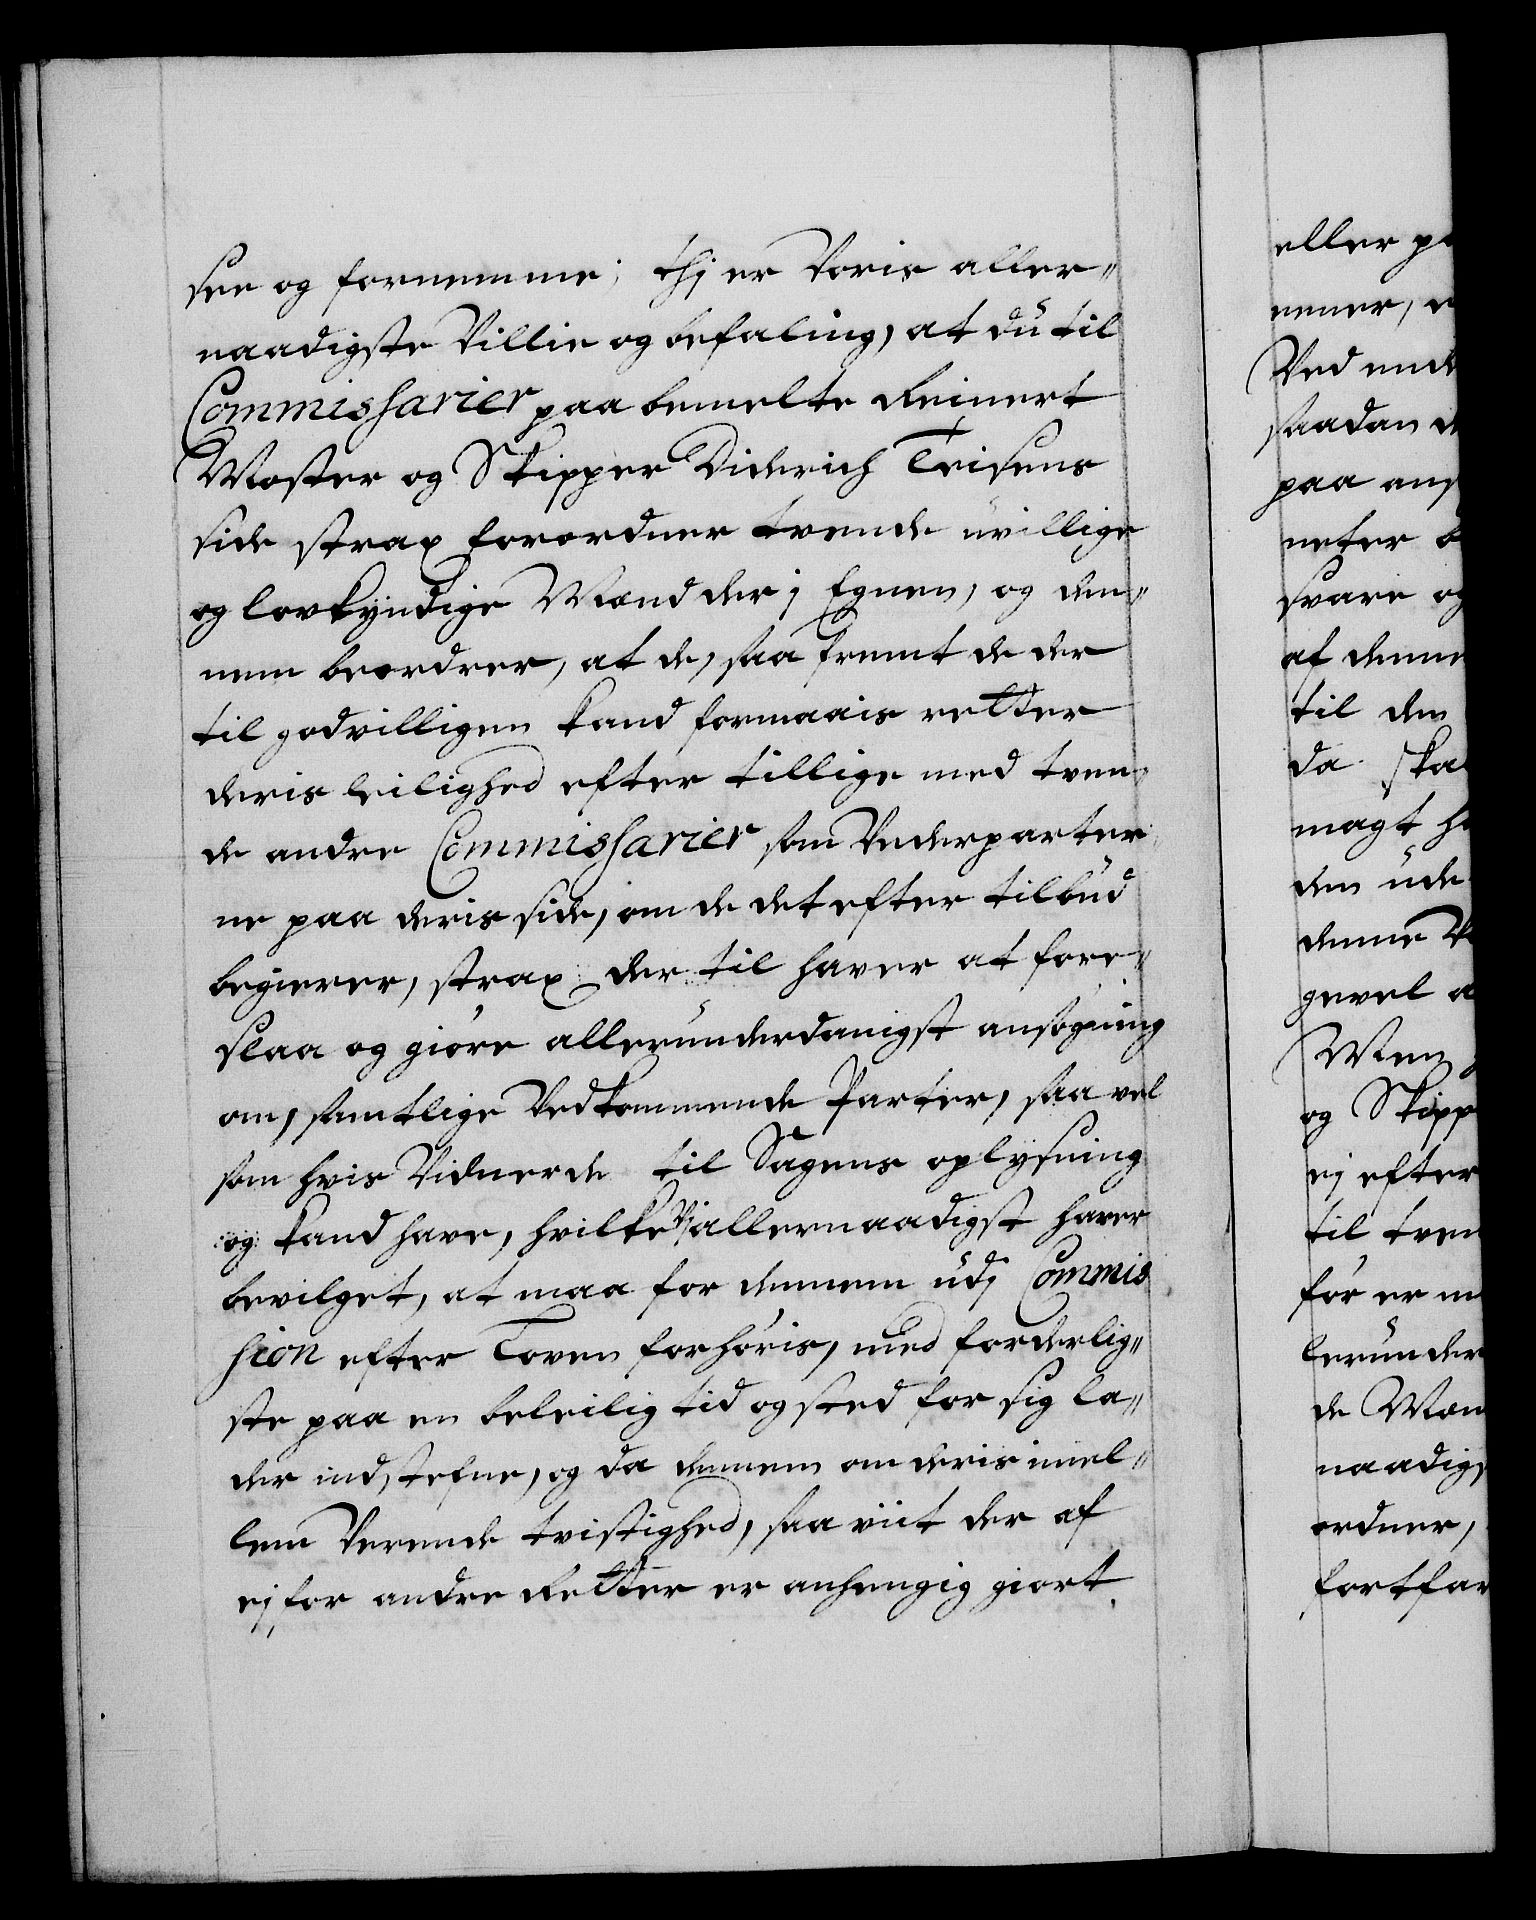 see og fornemme; thj er Voris aller„
naadigste Villie og befaling, at du til
Commissarier paa bemelte Reinert
Moster og Skipper Diderich Teisens
side strax forordner tvende uvillige
og lovkyndige Mænd der j Egnen, og den„
nem beordrer, at de, saa fremt de der
til godvilligen kand formaais retter
deris leilighed efter tillige med tven„
de andre Commissarier som Vederparter„
ne paa deris side, om de det efter tilbud
begierer, strax der til haver at fore„
slaa og giøre allerunderdanigst ansøgning
om, samtlige Vedkommende Parter, saa vel
som hvis Vidner de til Sagens oplysning
og kand have, hvilke Vj allernaadigst haver
bevilget, at maa for dennem udj Commis
sion efter Loven forhøris, med forderlig„
ste paa en beleilig tid og sted for sig la„
der indstefne, og da dennem om deris imel„
lem Verende tvistighed, saa viit der af
ej for andre Retter er anhengig giort.
eller pa
nener, e
Ved ende
saadan d
paa ans
neter b
svare og
af denne
til den
da skal
magt ha
den ude
denne V
gevel a
Men
og Skipp
ej efter
til tven
før er m
lerunder
de Mæn
naadigs
ordner,
fortfar